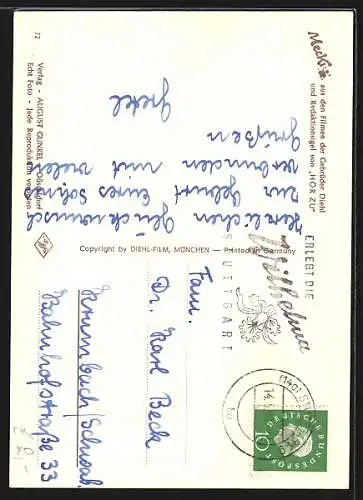 Mecki
aus den Filmen der Gebrüder Diehl
und Redaktionsigel von „HÖR ZU“
Herzlichen Glückwunsch
zur Geburt Eures Sohnes
verbunden mit vielen
Grüßen
Gretel
72
Verlag - AUGUST GUNKEL - Düsseldorf
Echt Foto - Jede Reproduktion verboten
Copyright by DIEHL-FILM, MÜNCHEN — Printed in Germany
ERLEBT DIE
Wilhelma
STUTTGART
(14a) ST
14.
b
DEUTSCHE BUNDESPOST
10
Fam.
Dr. Karl Beck
Krumbach/Schwab.
Bahnhofstraße 33